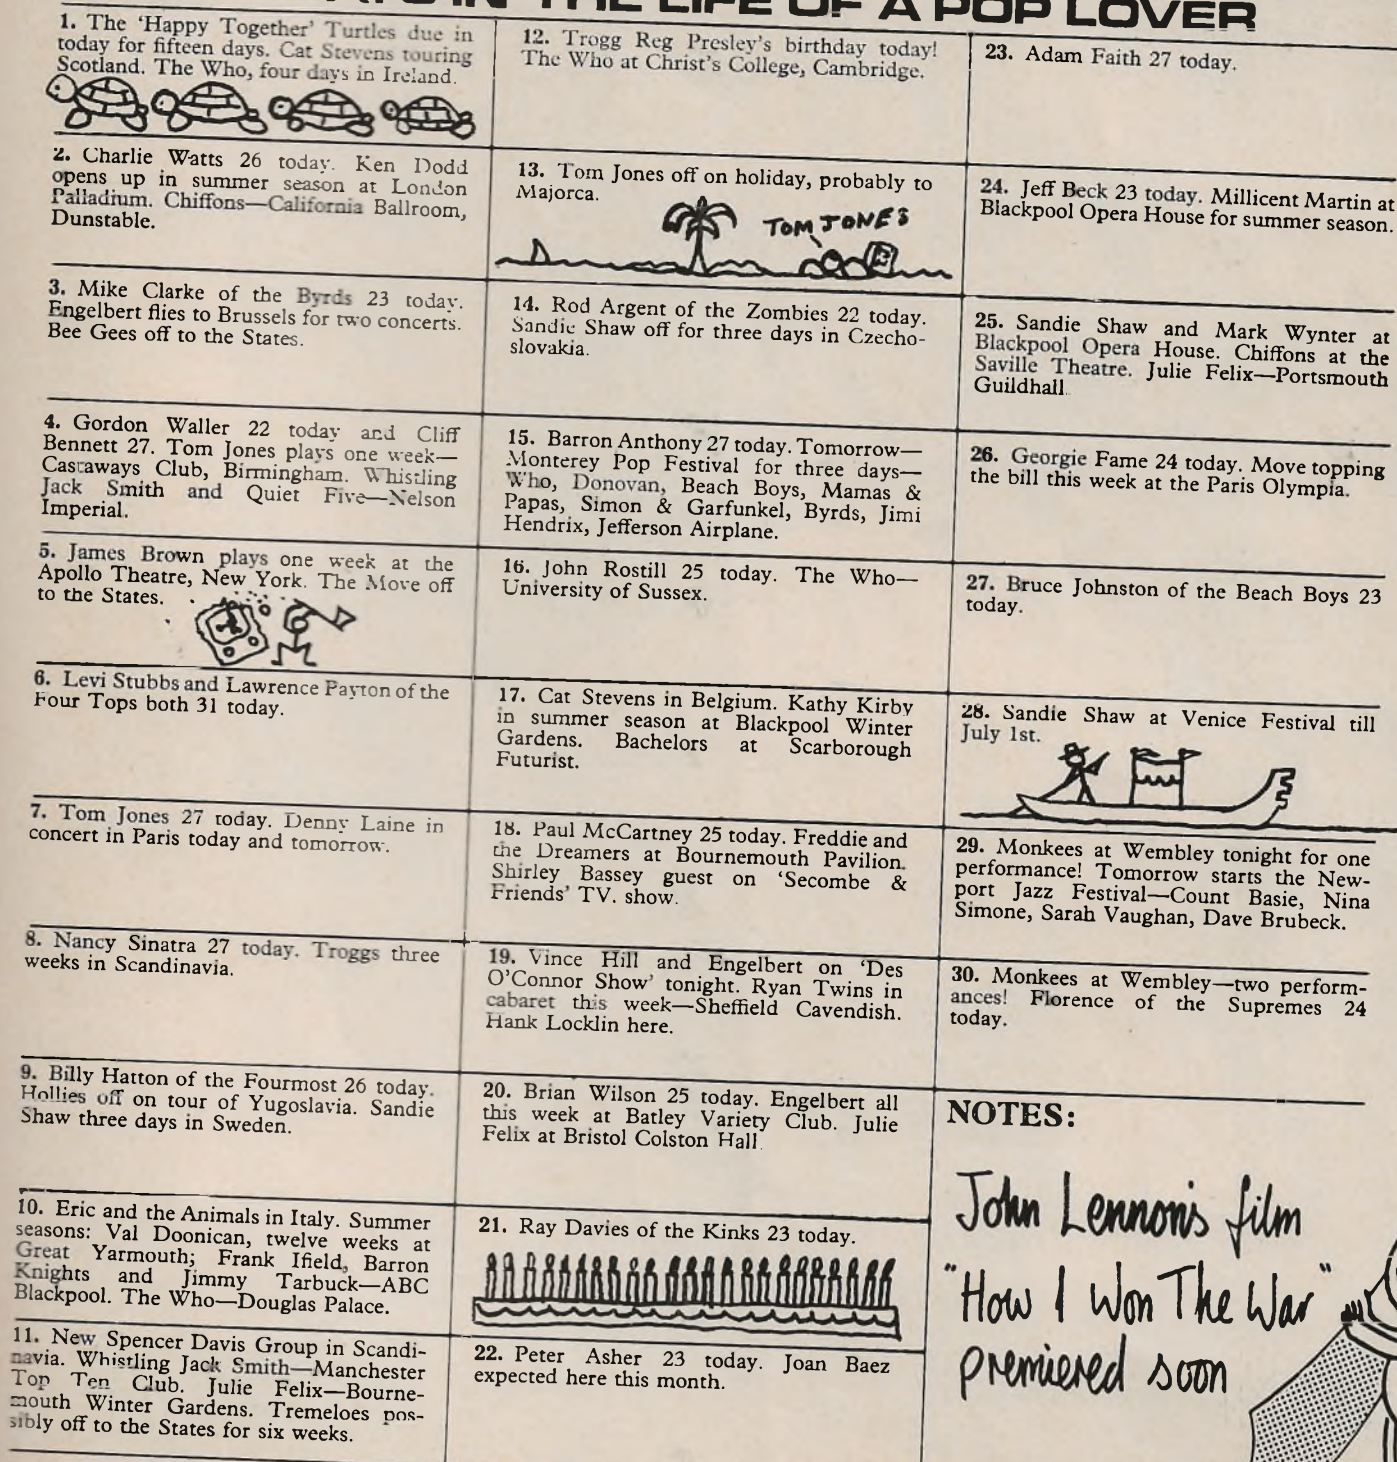 IN THE LIFE OF A POP LOVER
1. The 'Happy Together' Turtles due in
today for fifteen days. Cat Stevens touring
Scotland. The Who, four days in Ireland.
2. Charlie Watts 26 today. Ken Dodd
opens up in summer season at London
Palladium. Chiffons—California Ballroom,
Dunstable.
3. Mike Clarke of the Byrds 23 today.
Engelbert flies to Brussels for two concerts.
Bee Gees off to the States.
4. Gordon Waller 22 today and Cliff
Bennett 27. Tom Jones plays one week—
Castaways Club, Birmingham. Whistling
Jack Smith and Quiet Five—Nelson
Imperial.
5. James Brown plays one week at the
Apollo Theatre, New York. The Move off
to the States.
6. Levi Stubbs and Lawrence Payton of the
Four Tops both 31 today.
7. Tom Jones 27 today. Denny Laine in
concert in Paris today and tomorrow.
8. Nancy Sinatra 27 today. Troggs three
weeks in Scandinavia.
9. Billy Hatton of the Fourmost 26 today.
Hollies off on tour of Yugoslavia. Sandie
Shaw three days in Sweden.
10. Eric and the Animals in Italy. Summer
seasons: Val Doonican, twelve weeks at
Great Yarmouth; Frank Ifield, Barron
Knights and Jimmy Tarbuck—ABC
Blackpool. The Who—Douglas Palace.
11. New Spencer Davis Group in Scandi-
navia. Whistling Jack Smith—Manchester
Top Ten Club. Julie Felix—Bourne-
mouth Winter Gardens. Tremeloes pos-
sibly off to the States for six weeks.
12. Trogg Reg Presley's birthday today!
The Who at Christ's College, Cambridge.
13. Tom Jones off on holiday, probably to
Majorca.
TOM JONES
14. Rod Argent of the Zombies 22 today.
Sandie Shaw off for three days in Czecho-
slovakia.
15. Barron Anthony 27 today. Tomorrow—
Monterey Pop Festival for three days—
Who, Donovan, Beach Boys, Mamas &
Papas, Simon & Garfunkel, Byrds, Jimi
Hendrix, Jefferson Airplane.
16. John Rostill 25 today. The Who—
University of Sussex.
17. Cat Stevens in Belgium. Kathy Kirby
in summer season at Blackpool Winter
Gardens. Bachelors at Scarborough
Futurist.
18. Paul McCartney 25 today. Freddie and
the Dreamers at Bournemouth Pavilion.
Shirley Bassey guest on 'Secombe &
Friends' TV. show.
19. Vince Hill and Engelbert on 'Des
O'Connor Show' tonight. Ryan Twins in
cabaret this week—Sheffield Cavendish.
Hank Locklin here.
20. Brian Wilson 25 today. Engelbert all
this week at Batley Variety Club. Julie
Felix at Bristol Colston Hall.
21. Ray Davies of the Kinks 23 today.
22. Peter Asher 23 today. Joan Baez
expected here this month.
23. Adam Faith 27 today.
24. Jeff Beck 23 today. Millicent Martin at
Blackpool Opera House for summer season.
25. Sandie Shaw and Mark Wynter at
Blackpool Opera House. Chiffons at the
Saville Theatre. Julie Felix—Portsmouth
Guildhall.
26. Georgie Fame 24 today. Move topping
the bill this week at the Paris Olympia.
27. Bruce Johnston of the Beach Boys 23
today.
28. Sandie Shaw at Venice Festival till
July 1st.
29. Monkees at Wembley tonight for one
performance! Tomorrow starts the New-
port Jazz Festival—Count Basie, Nina
Simone, Sarah Vaughan, Dave Brubeck.
30. Monkees at Wembley—two perform-
ances! Florence of the Supremes 24
today.
NOTES:
John Lennon's film
"How I Won The War"
premiered soon